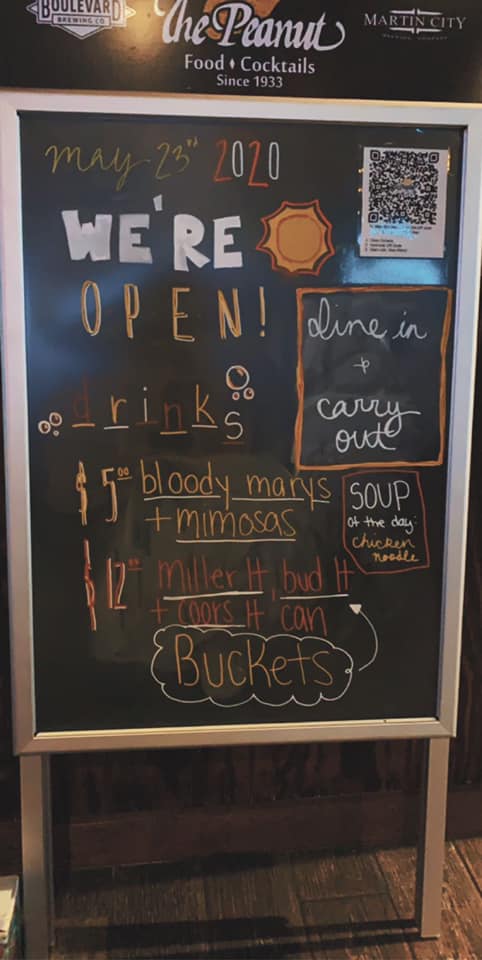 BOULEVARD
BREWING CO.
The Peanut
Food ♦ Cocktails
Since 1933
MARTIN CITY
May 23rd 2020
WE'RE
OPEN!
dine in
+
carry
out
drinks
$5.00 bloody marys
+ mimosas
SOUP
of the day:
chicken
noodle
$12.00 miller lt, bud lt
+ coors lt can
Buckets